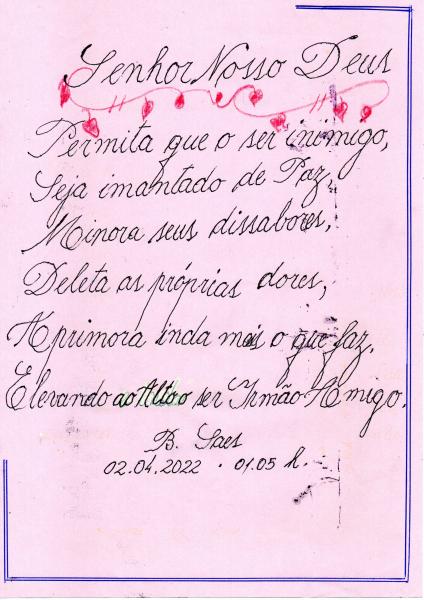 Senhor Nosso Deus
Permita que o ser inimigo,
Seja imantado de Paz,
Minora seus dissabores,
Deleta as próprias dores,
Aprimora inda mais o que faz,
Elevando ao Alto o ser Irmão Amigo.
B. Saes
02.04.2022 . 01.05 h.